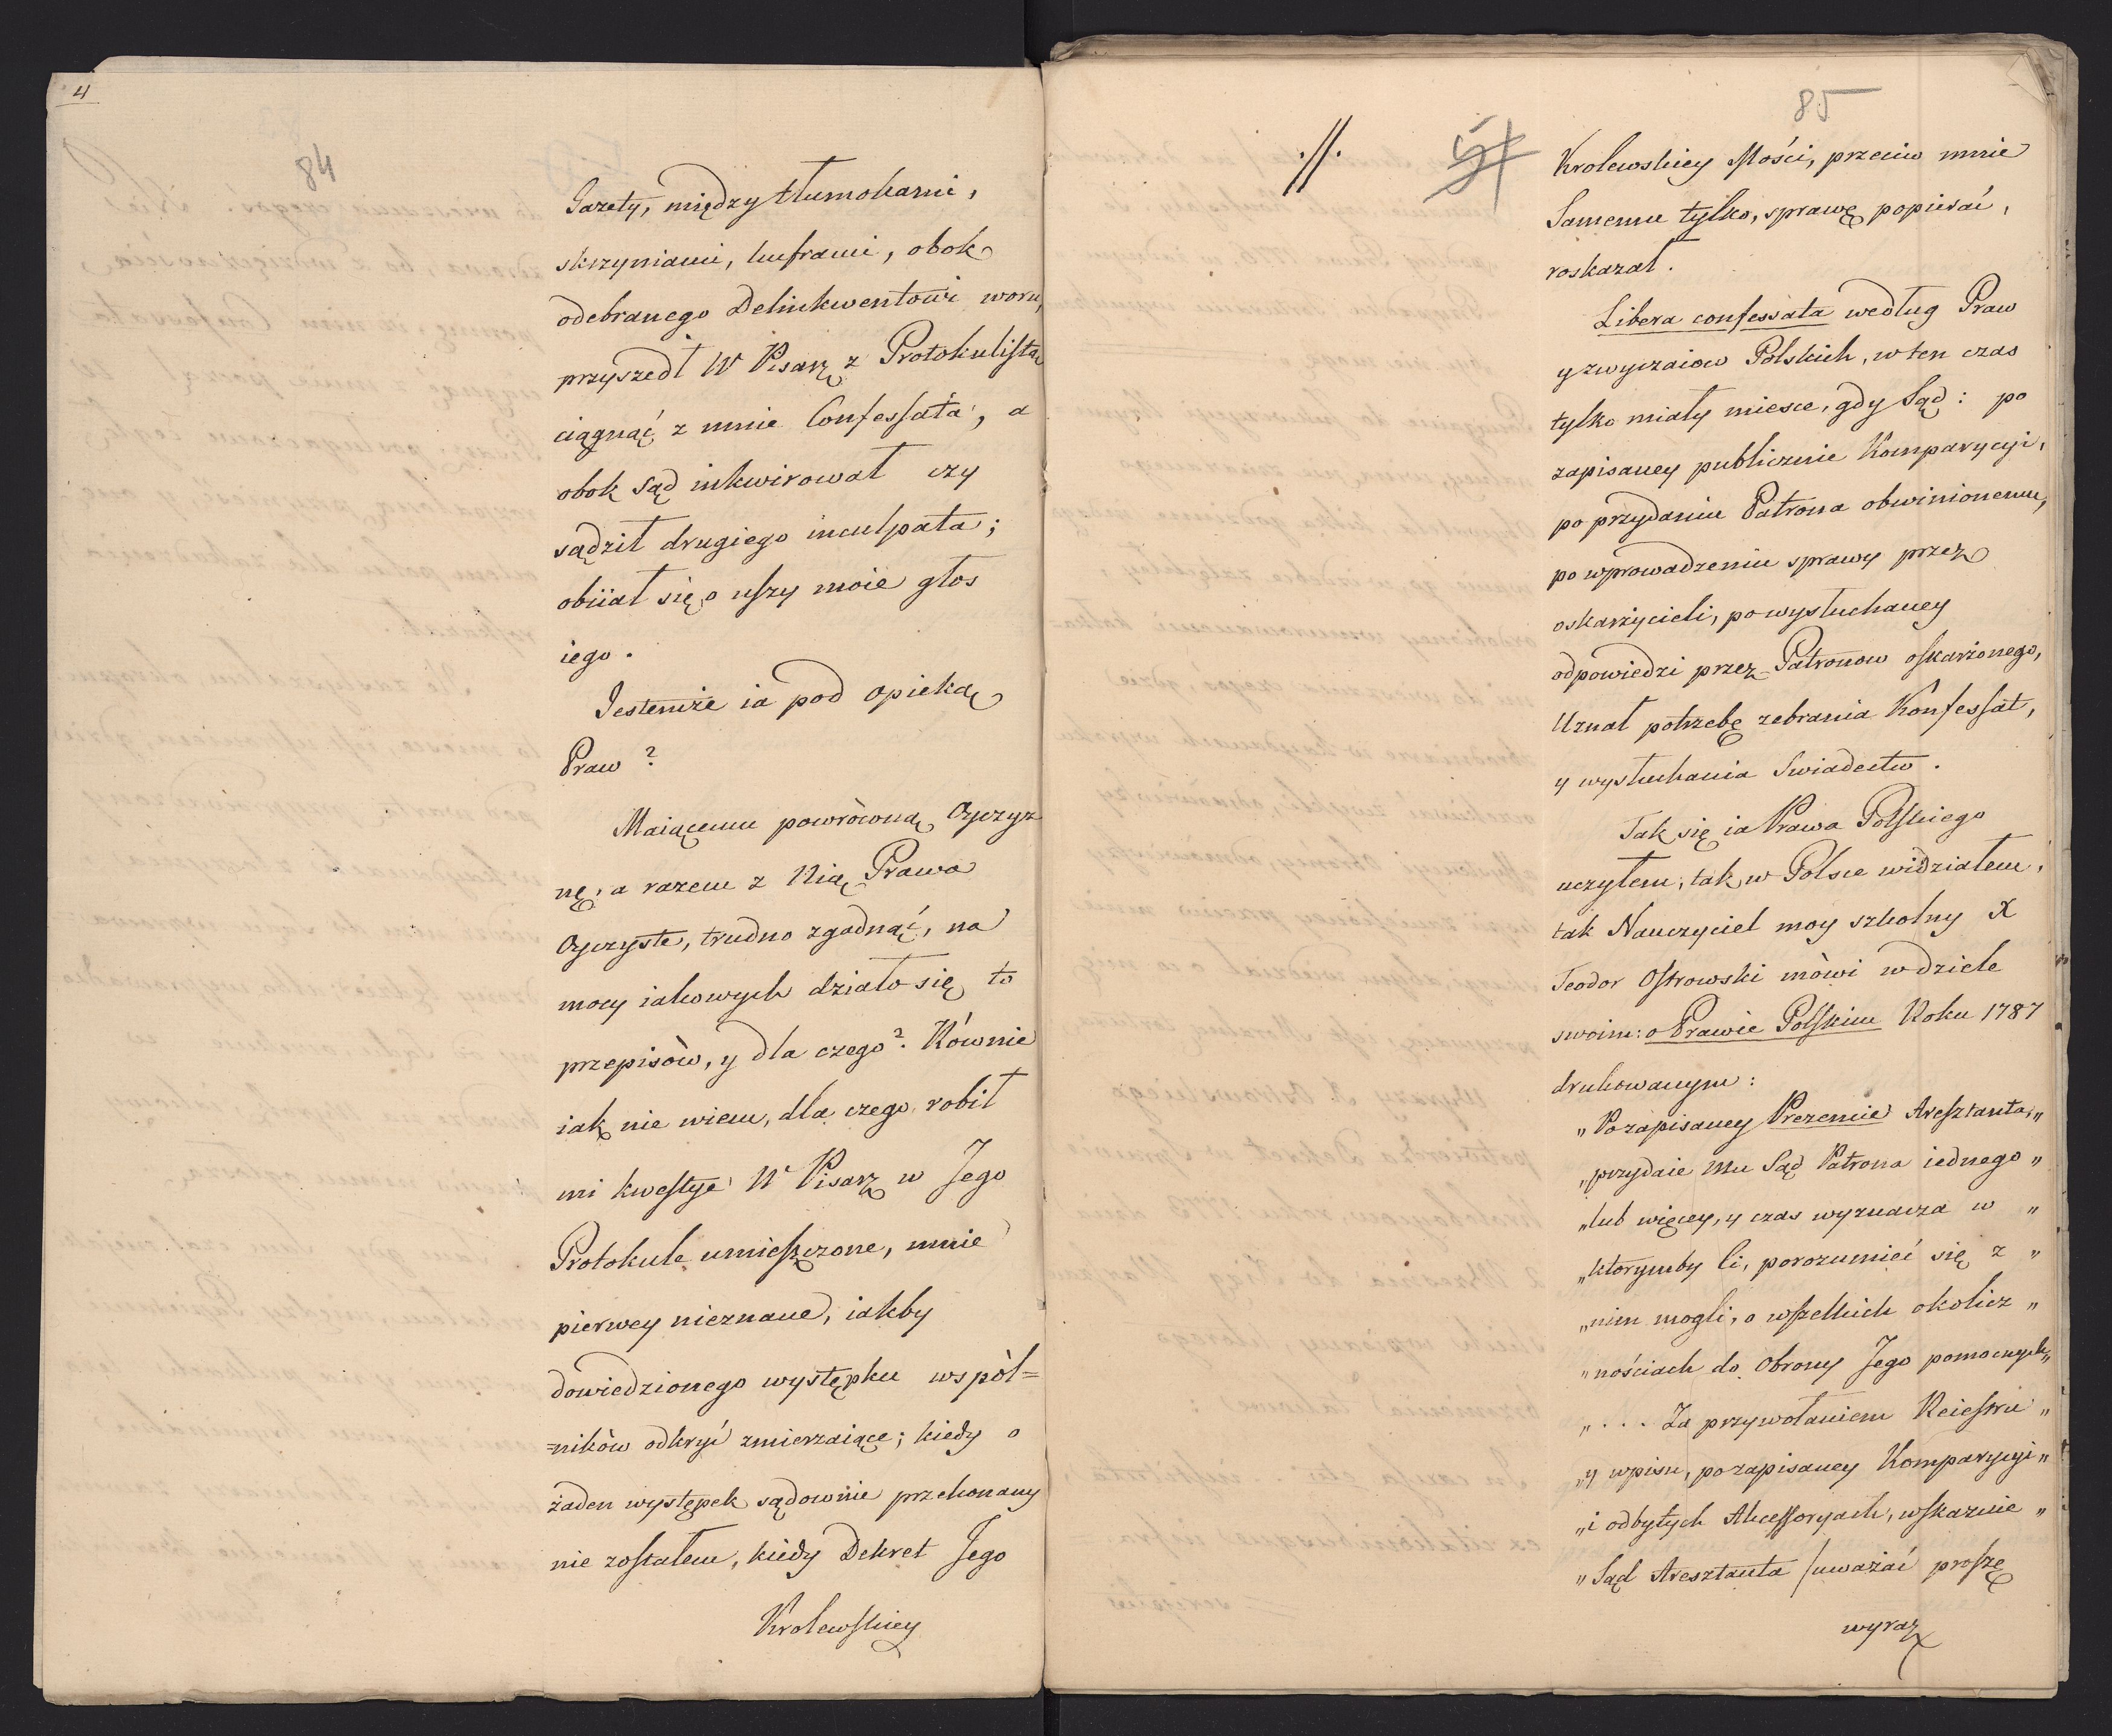 4
84
Gazety, między tłumokami,
skrzyniami, kuframi, obok
odebranego Delinkwentowi woru,
przyszedł W Pisarz z Protokulistą
ciągnąć z mnie Confessata, a
obok sąd inkwirował czy
sądził drugiego inculpata;
obiiał się o uszy moie głos
iego.
Jestemże ia pod opieką
Praw?
Maiącemu powróconą Oyczyz
nę, a razem z Nią Prawa
Oyczyste, trudno zgadnąć, na
mocy iakowych działo się to
przepisòw, y dla czego? Równie
iak nie wiem, dla czego robił
mi kwestye W Pisarz w Jego
Protokule umieszczone, mnie
pierwey nieznane, iakby
dowiedzionego występku wspòl=
=nikòw odkryć zmierzaiące; kiedy o
żaden występek sądownie przekonany
nie zostałem, kiedy Dekret Jego
Krolewskiey
85
.//.
Krolewskiey Mości, przeciw mnie
Samemu tylko, sprawę popierać,
roskazał.
Libera confessata według Praw
y zwyczaiow Polskich, w ten czas
tylko miały miesce, gdy Sąd: po
zapisaney publicznie Komparycyi,
po przydaniu Patrona obwinionemu,
po wprowadzeniu sprawy przez
oskarżycieli, po wysłuchaney
odpowiedzi przez Patronow oskarżonego,
Uznał potrzebę zebrania Konfessat,
y wysłuchania Swiadectw.
Tak się ia Prawa Polskiego
uczyłem, tak w Polsce widziałem,
tak Nauczyciel moy szkolny X
Teodor Ostrowski mòwi w dziele
swoim: o Prawie Polskim Roku 1787
drukowanym:
„Po zapisaney Prezencie Aresztanta,„
„przydaie mu Sąd Patrona iednego„
„lub więcey, y czas wyznacza w„
„ktorymby Ci, porozumieć się z„
„nim mogli, o wszelkich okolicz„
„nościach do Obrony Jego pomocnych„
„... Za przywołaniem Reiestru„
„y wpisu, po zapisaney Komparycyi„
„i odbytych Akcessoryach, wskazuie„
„Sąd Aresztanta /uważać proszę
wyraz